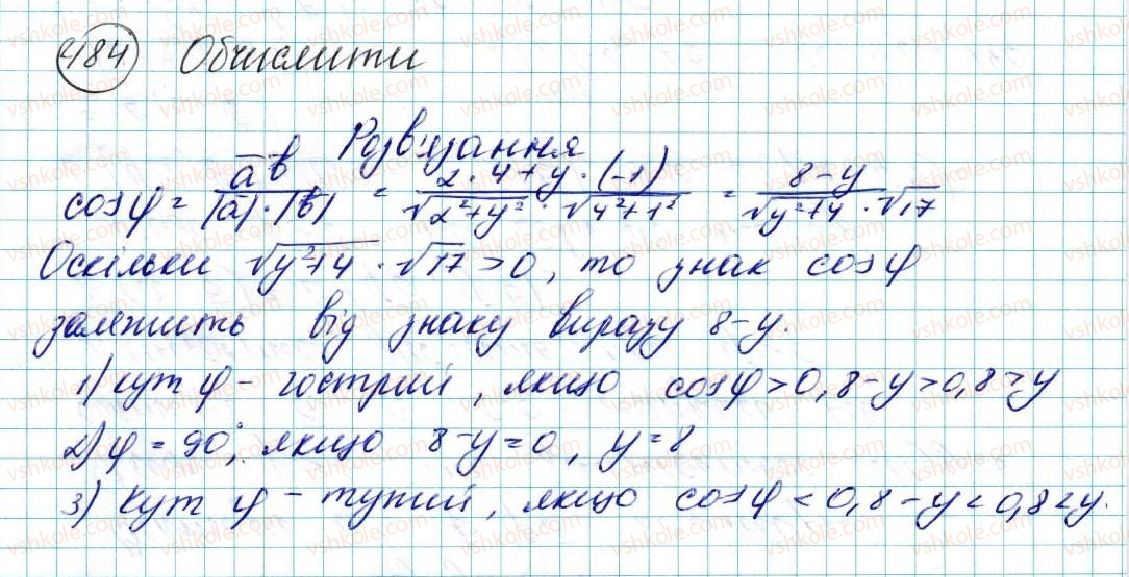 484 Обчислити
Розв'язання
cos φ = \frac{\overline{a} \overline{b}}{|\overline{a}| \cdot |\overline{b}|} = \frac{2 \cdot 4 + y \cdot (-1)}{\sqrt{2^2 + y^2} \cdot \sqrt{4^2 + 1^2}} = \frac{8 - y}{\sqrt{y^2 + 4} \cdot \sqrt{17}}
Оскільки \sqrt{y^2 + 4} \cdot \sqrt{17} > 0, то знак cos φ
залежить від знаку виразу 8 - y.
1) кут φ - гострий, якщо cos φ > 0, 8 - y > 0, 8 > y
2) φ = 90°, якщо 8 - y = 0, y = 8
3) Кут φ - тупий, якщо cos φ < 0, 8 - y < 0, 8 < y.